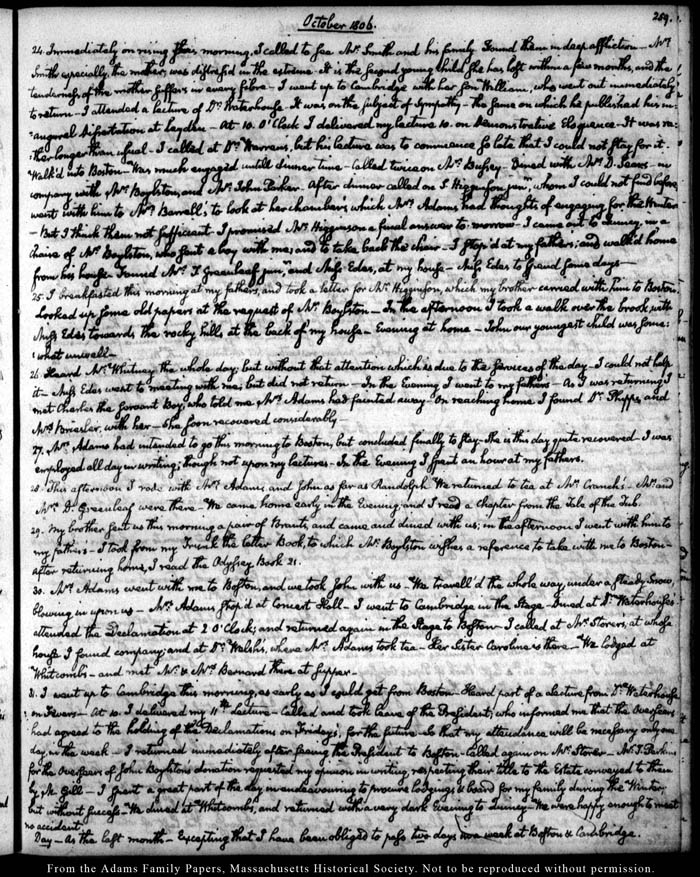 October 1806.
289.
24. Immediately on rising this morning, I called to see Mrs. Smith and his family. Found them in deep affliction — Mrs.
Smith especially, the mother, was distress'd in the extreme. It is the second young child she has lost within a few months, and the
tenderness of the mother suffers in every fibre — I went up to Cambridge with her son William, who went out immediately
to return — I attended a lecture of Dr. Waterhouse. It was on the subject of Sympathy — the same on which he published his in-
augural dissertation at Leyden — At 10. O'Clock I delivered my lecture 10. on Demonstrative Eloquence. It was ra-
ther longer than usual. I called at Dr. Warrens, but his lecture was to commence so late that I could not stay for it.
Walk'd into Boston. Was much engaged untill dinner time — called twice on Mr. Bussey — Dined with Mr. D. Sears — in
company with Mr. Boylston, and Mr. John Parker. After dinner called on S. Higginson junr., whom I could not find before
went with him to Mrs. Barrell's, to look at her chambers which Mrs. Adams had thoughts of engaging for the Winter
— But I think them not sufficient — I promised Mr. Higginson a final answer to-morrow — I came out to Quincy, in a
chaise of Mr. Boylston, who sent a boy with me, and to take back the chair — I stop'd at my fathers, and walk'd home
from his house. Found Mr. T. Greenleaf junr., and Miss Edes, at my house — Miss Edes to spend some days —
25. I breakfasted this morning at my fathers, and took a letter for Mr. Higginson, which my brother carried with him to Boston.
Looked up some old papers at the request of Mr. Boylston — In the afternoon I took a walk over the brook, with
Miss Edes towards the rocky hills at the back of my house — Evening at home — John, our youngest child was some-
what unwell —
26. Heard Mr. Whitney the whole day; but without that attention which is due to the services of the day — I could not help
it — Miss Edes went to meeting with me; but did not return — In the Evening I went to my fathers — As I was returning I
met Charles the Servant Boy, who told me, Mrs. Adams had fainted away — On reaching home I found Dr. Phipps, and
Mrs. Briesler, with her — She soon recovered considerably
27. Mrs. Adams had intended to go this morning to Boston, but concluded finally to stay — She is this day quite recovered — I was
employed all day in writing; though not upon my lectures — In the Evening I spent an hour at my fathers.
28. This afternoon I rode with Mrs. Adams, and John as far as Randolph. We returned to tea at Mr. Cranch's — Mr. and
Mrs. D. Greenleaf were there — We came home early in the Evening; and I read a chapter from the Tale of the Tub.
29. My brother sent us this morning a pair of Brants, and came and dined with us; in the afternoon I went with him to
my fathers — I took from my Trunk the letter Book, to which Mr. Boylston wishes a reference to take with me to Boston —
after returning home, I read the Odyssey Book 21.
30. Mrs. Adams went with me to Boston, and we took John with us. We travell'd the whole way, under a steady Snow,
blowing in upon us — Mrs. Adams stop'd at Concert Hall — I went to Cambridge in the Stage — Dined at Dr. Waterhouse's
attended the Declamation at 2 O'Clock; and returned again in the Stage to Boston — I called at Mr. Storers, at whose
house I found company; and at Dr. Welsh's, where Mrs. Adams took tea — Her Sister Caroline is there — We lodged at
Whitcombs — and met Mr. & Mrs. Bernard there at supper.
31. I went up to Cambridge this morning, as early as I could get from Boston — Heard part of a lecture from Dr. Waterhouse
on Fevers — At 10. I delivered my 11th. lecture — Called and took leave of the President, who informed me that the Overseers
had agreed to the holding of the Declamations on Fridays, for the future so that my attendance will be necessary only one
day, in the week — I returned immediately after seeing the President to Boston. Called again on Mr. Storer — Mr. Parkins
for the Overseers of John Boylston's donation requested my opinion in writing, respecting their title to the Estate conveyed to them
by M. Gill — I spent a great part of the day in endeavouring to procure lodgings & board for my family during the Winter;
but without success — We dined at Whitcombs, and returned with a very dark Evening to Quincy — We were happy enough to meet
no accident.
Day — As the last month — Excepting that I have been obliged to pass two days in a week at Boston & Cambridge.
From the Adams Family Papers, Massachusetts Historical Society. Not to be reproduced without permission.